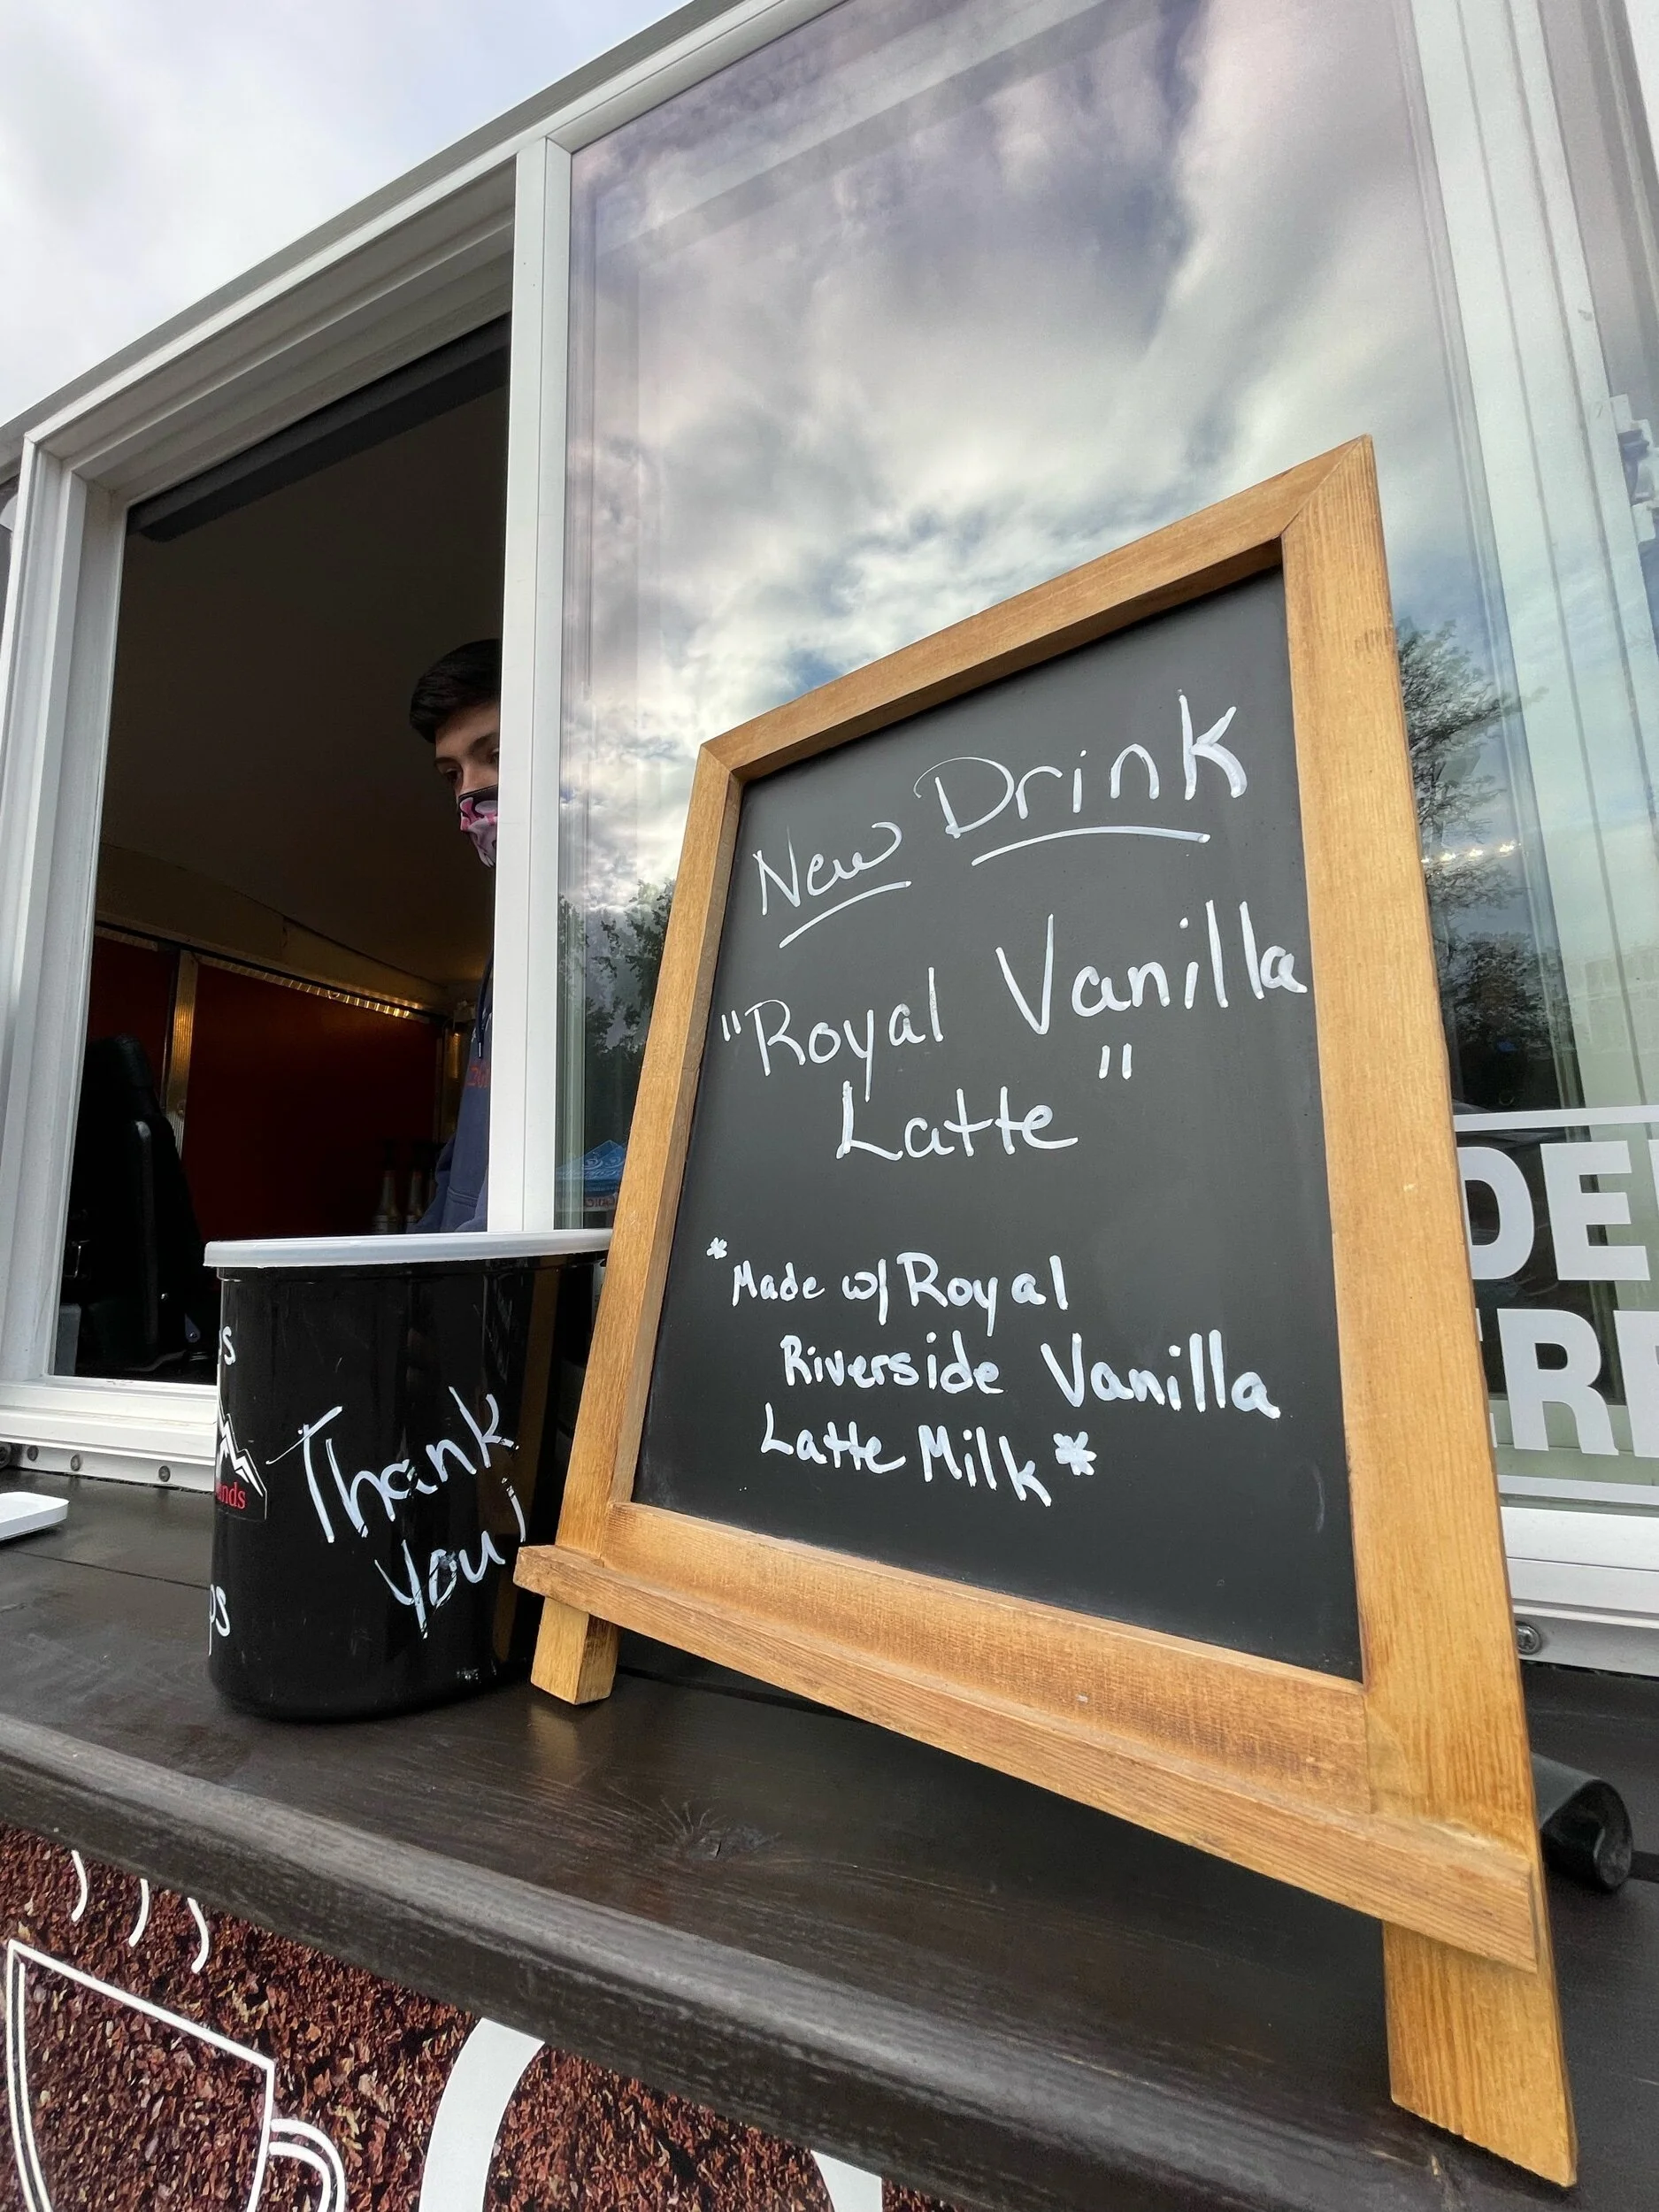 New Drink
"Royal Vanilla
Latte"
*Made w/ Royal
Riverside Vanilla
Latte Milk*
Thank
You!